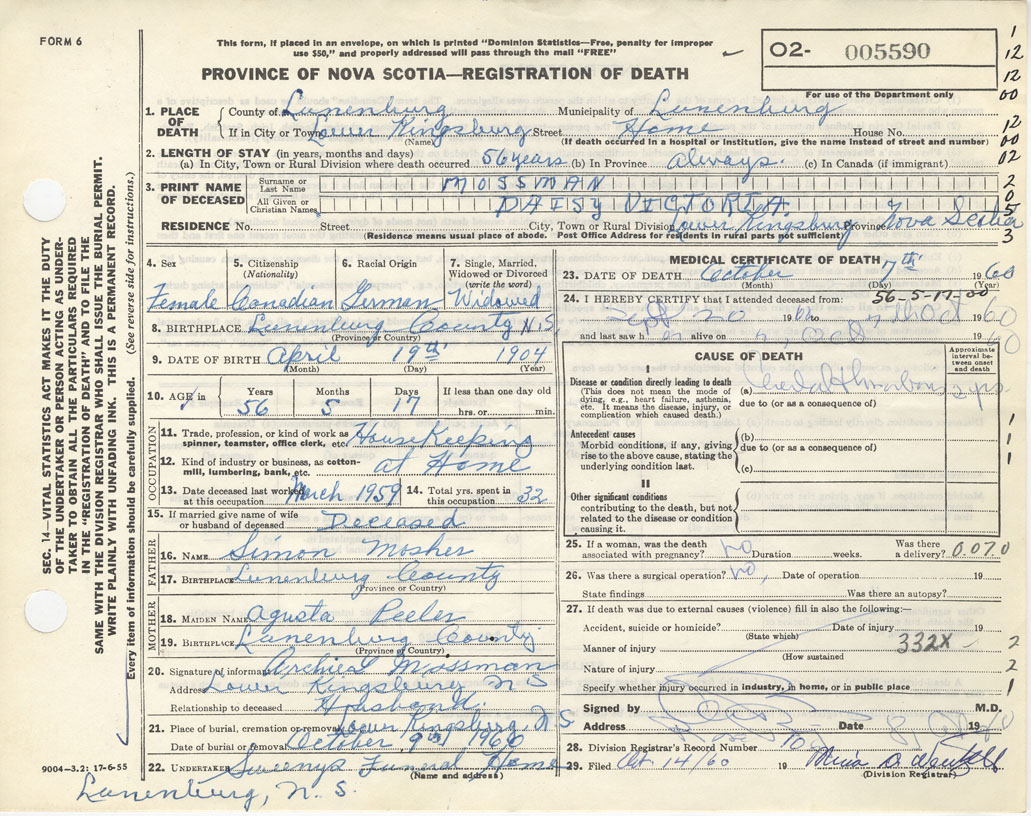 FORM 6
This form, if placed in an envelope, on which is printed "Dominion Statistics—Free, penalty for improper
use $50," and properly addressed will pass through the mail "FREE"
O2- 005590
For use of the Department only
PROVINCE OF NOVA SCOTIA—REGISTRATION OF DEATH
1
12
12
00
12
00
02
2
0
5
3
1. PLACE OF DEATH County of Lunenburg Municipality of Lunenburg
If in City or Town Lower Kingsburg Street Home House No.
(Name) (If death occurred in a hospital or institution, give the name instead of street and number)
2. LENGTH OF STAY (in years, months and days)
(a) In City, Town or Rural Division where death occurred 56 years (b) In Province always. (c) In Canada (if immigrant)
3. PRINT NAME OF DECEASED Surname or Last Name MOSSMAN
All Given or Christian Names DAISY VICTORIA.
RESIDENCE No. Street City, Town or Rural Division Lower Kingsburg Province Nova Scotia
(Residence means usual place of abode. Post Office Address for residents in rural parts not sufficient)
SEC. 14—VITAL STATISTICS ACT MAKES IT THE DUTY
OF THE UNDERTAKER OR PERSON ACTING AS UNDER-
TAKER TO OBTAIN ALL THE PARTICULARS REQUIRED
IN THE "REGISTRATION OF DEATH" AND FILE THE
SAME WITH THE DIVISION REGISTRAR WHO SHALL ISSUE THE BURIAL PERMIT.
WRITE PLAINLY WITH UNFADING INK. THIS IS A PERMANENT RECORD.
Every item of information should be carefully supplied. (See reverse side for instructions.)
4. Sex 5. Citizenship (Nationality) 6. Racial Origin 7. Single, Married, Widowed or Divorced (write the word)
Female Canadian German Widowed
8. BIRTHPLACE Lunenburg County N.S
(Province or Country)
9. DATE OF BIRTH April 19th 1904
(Month) (Day) (Year)
10. AGE in Years Months Days If less than one day old
56 5 17 hrs. or min.
OCCUPATION
11. Trade, profession, or kind of work as spinner, teamster, office clerk, etc. House Keeping
12. Kind of industry or business, as cotton-mill, lumbering, bank, etc. at Home
13. Date deceased last worked at this occupation March 1959 14. Total yrs. spent in this occupation 32
15. If married give name of wife or husband of deceased Deceased
FATHER
16. NAME Simon Mosher
17. BIRTHPLACE Lunenburg County
(Province or Country)
MOTHER
18. MAIDEN NAME Agusta Peeler
19. BIRTHPLACE Lunenburg County
(Province or Country)
20. Signature of informant Mossman
Address Lower Kingsburg N S
Relationship to deceased Husband.
21. Place of burial, cremation or removal Lower Kingsburg, N S
Date of burial or removal October 9th 1960
22. UNDERTAKER Sweenys Funeral Home
(Name and address)
9004-3.2: 17-6-55
Lunenburg, N. S.
MEDICAL CERTIFICATE OF DEATH
23. DATE OF DEATH October 7th 1960
(Month) (Day)
56-5-17-00
24. I HEREBY CERTIFY that I attended deceased from:
Sept 20 1960 to 7th Oct 1960
and last saw her alive on 7 Oct 1960
CAUSE OF DEATH
Approximate interval between onset and death
I
Disease or condition directly leading to death
(This does not mean the mode of dying, e.g., heart failure, asthenia, etc. It means the disease, injury, or complication which caused death.)
(a) Cerebral Thrombosis 2 yrs
due to (or as a consequence of)
Antecedent causes
Morbid conditions, if any, giving rise to the above cause, stating the underlying condition last.
(b)
due to (or as a consequence of)
(c)
1
1
1
II
Other significant conditions
contributing to the death, but not related to the disease or condition causing it.
25. If a woman, was the death associated with pregnancy? No Duration weeks. Was there a delivery? 0.070
26. Was there a surgical operation? No, Date of operation 19
State findings Was there an autopsy?
27. If death was due to external causes (violence) fill in also the following:—
Accident, suicide or homicide? Date of injury 19
(State which)
Manner of injury 332X 2
(How sustained)
Nature of injury 2
Specify whether injury occurred in industry, in home, or in public place 1
Signed by M.D.
Address Date 19
28. Division Registrar's Record Number 10
29. Filed Oct 14/60 19
(Division Registrar)